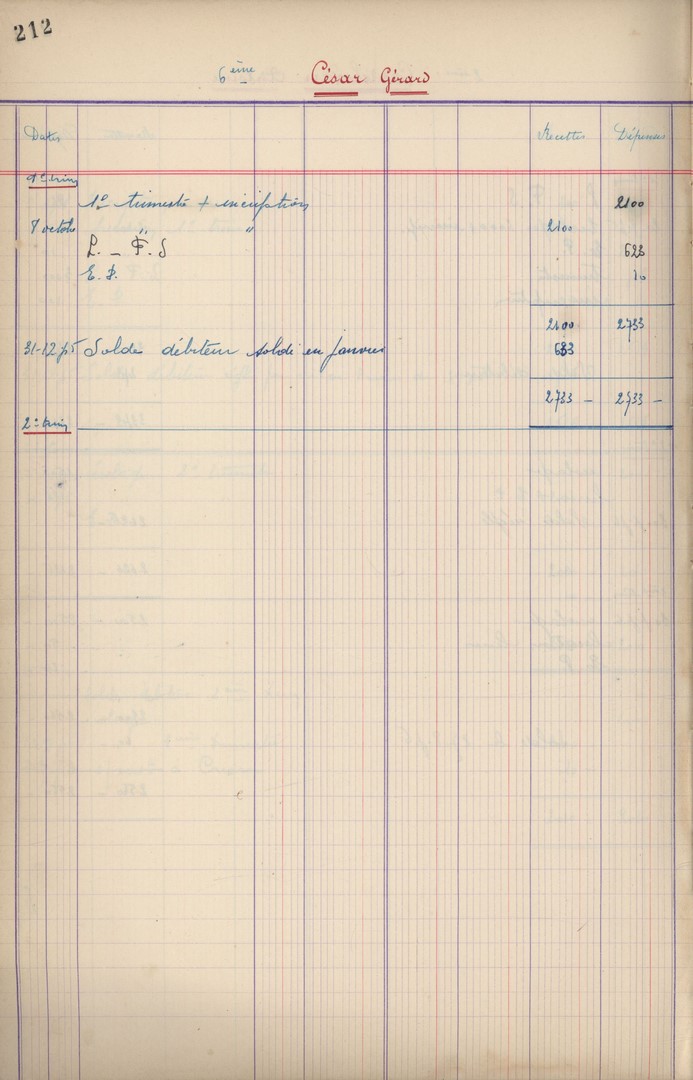 212
6ème César Gérard
Dates Recettes Dépenses
1º trim
1º trimestre + inscription 2100
7 octobre " " 2100
L. - F. S 623
E. P. 10
2100 2733
31-12 Solde débiteur soldé en janvier 633
2733 - 2733 -
2º trim